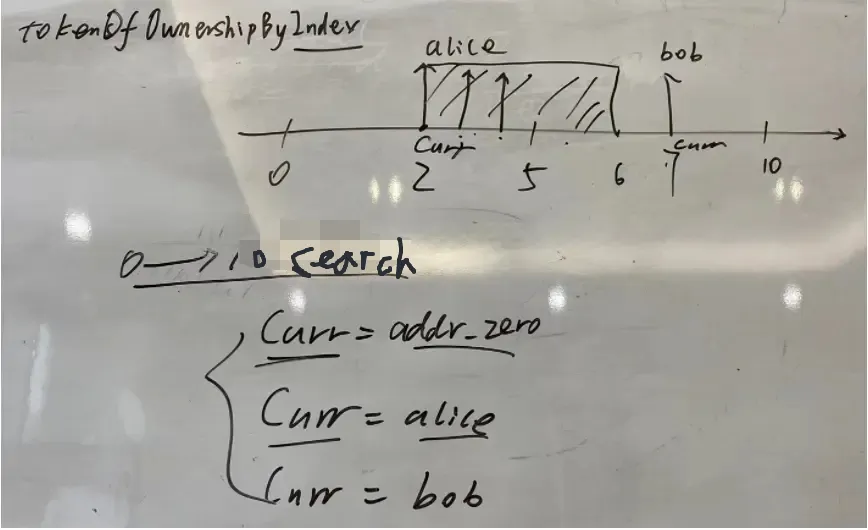 tokenOfOwnershipByIndex
alice
bob
Curr
curr
0
2
5
6
7
10
0 → 10 search
Curr = addr_zero
Curr = alice
Curr = bob